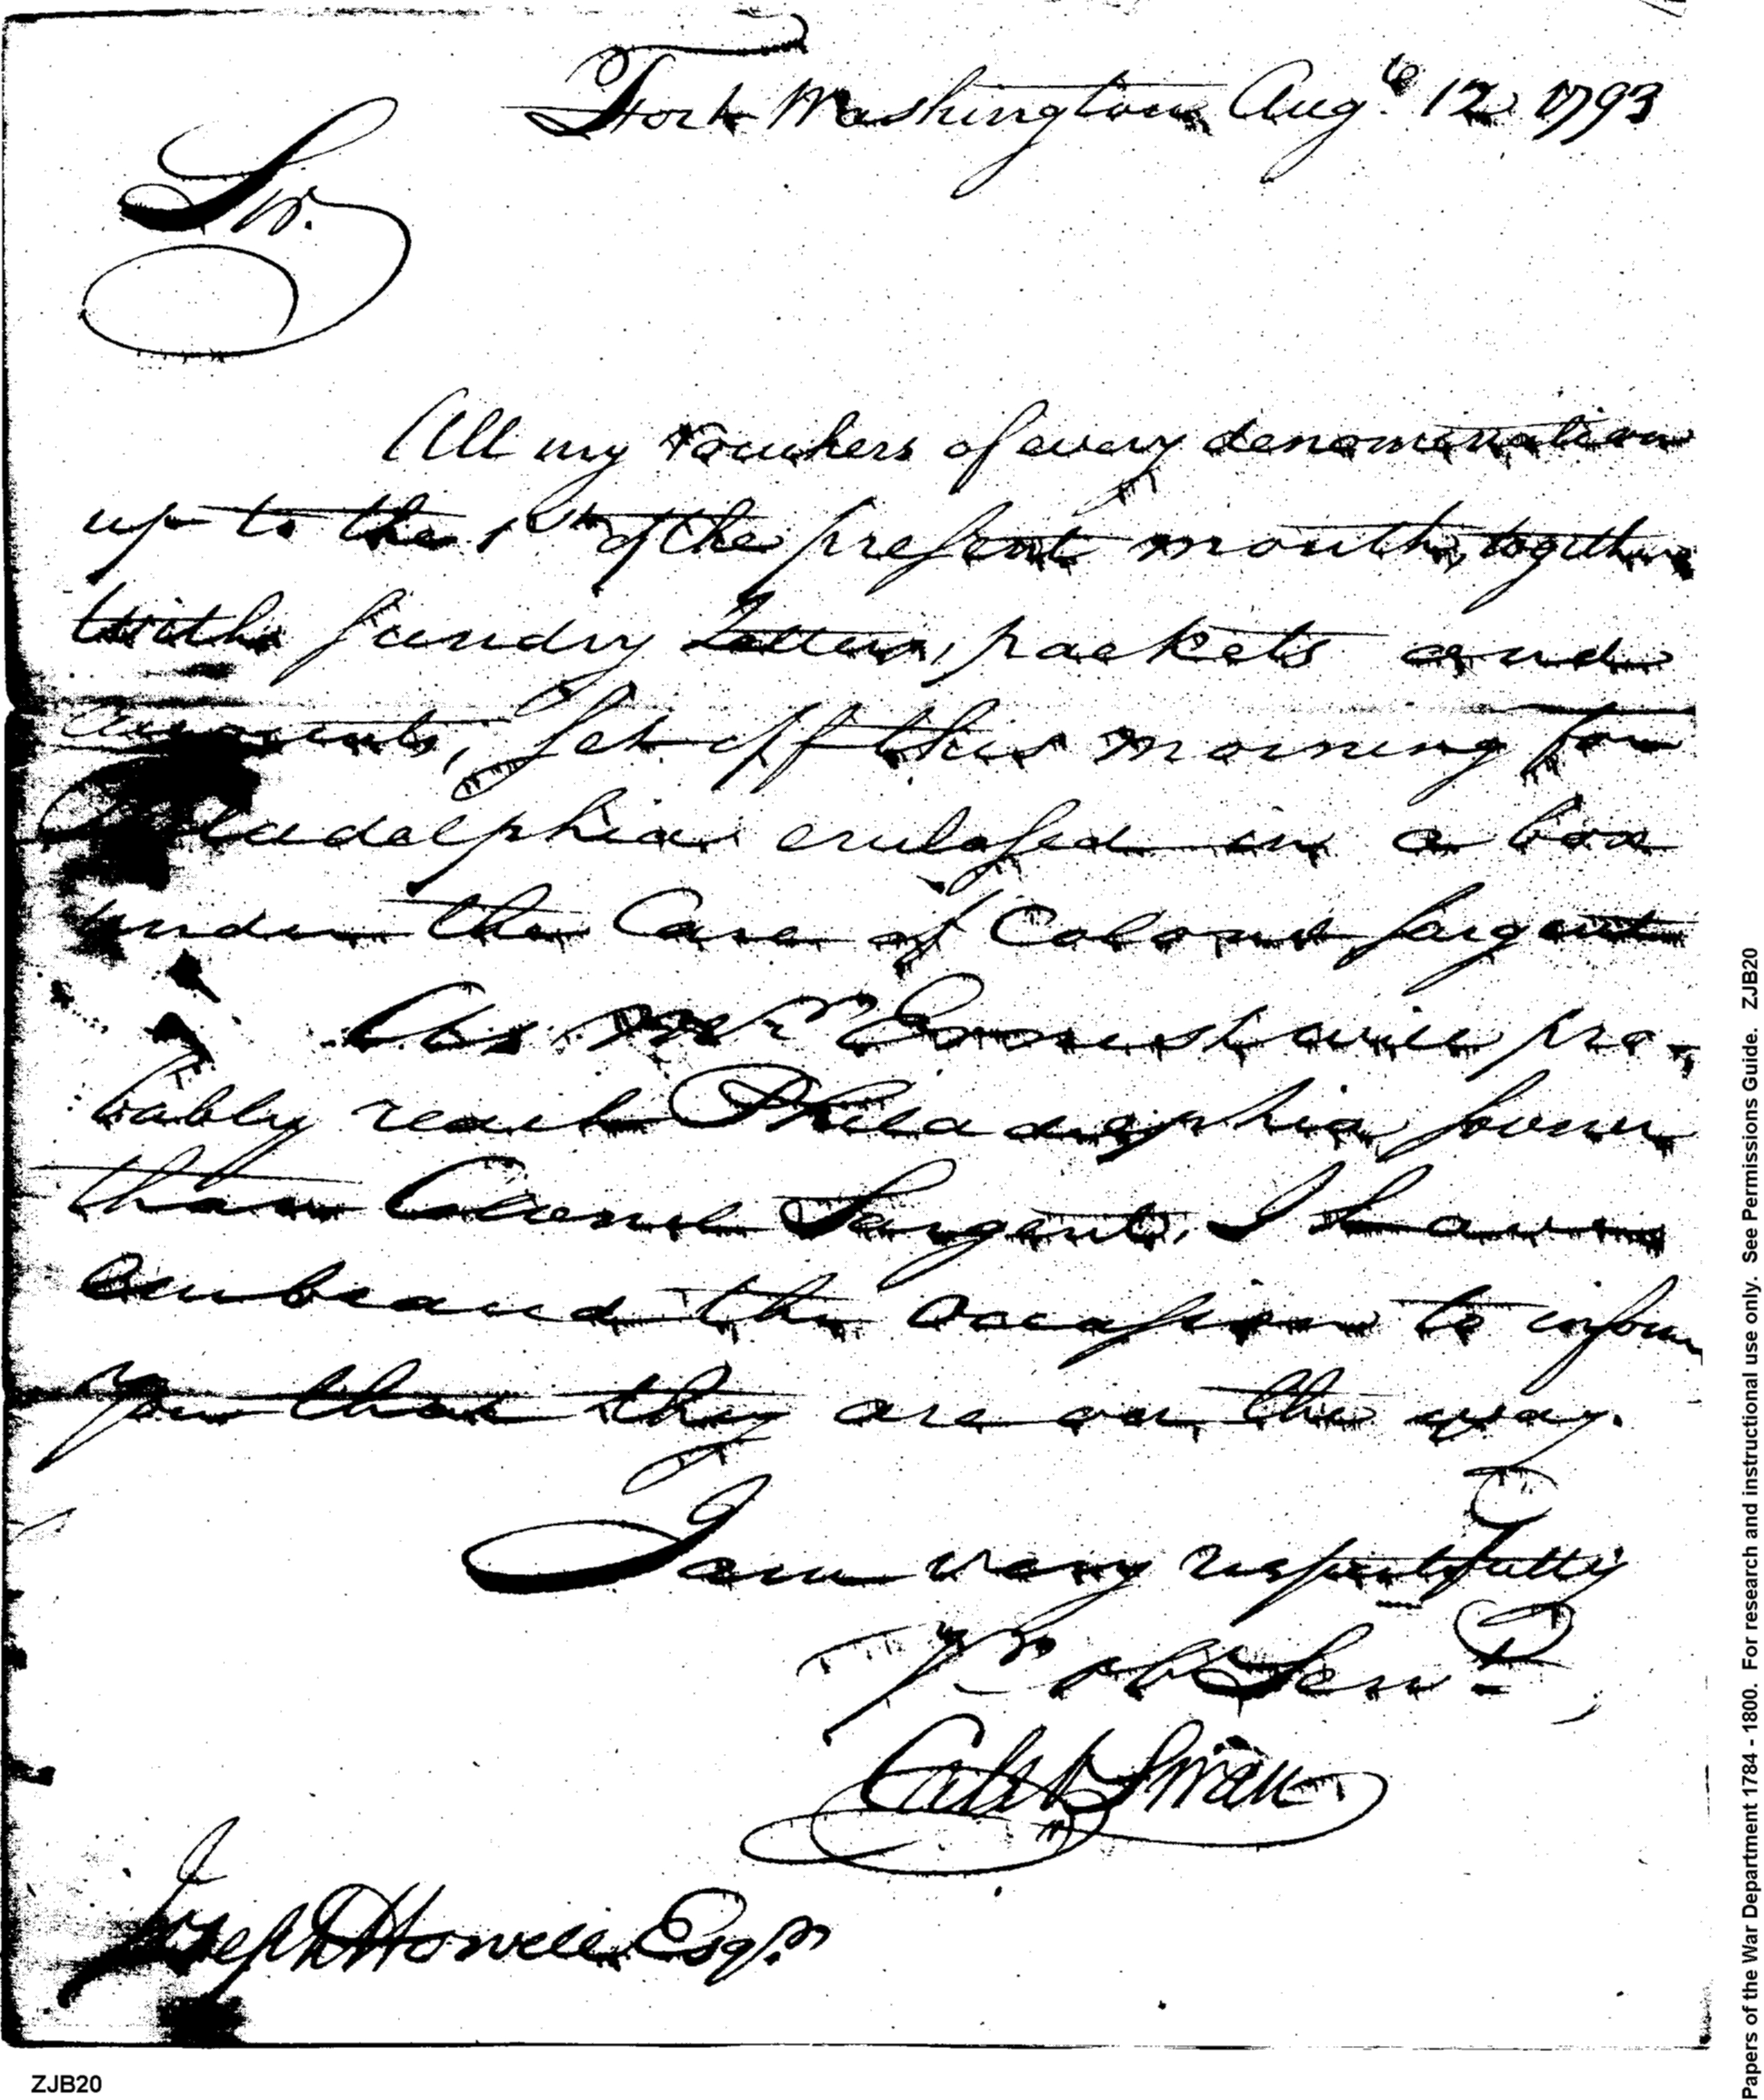 Fort Washington Augt. 12 1793
Sir.
All my vouchers of every denomination
up to the 1st of the present month, together
with sundry Letters, packets and
accounts, set off this morning for
Philadelphia enclosed in a box
under the Care of Colonel Sargent
As Mr Ernest will pro-
bably reach Philadelphia sooner
than Colonel Sargent, I have
embraced the occasion to inform
you that they are on the way.
I am very respectfully
Yr ob Servt,
Caleb Swan
Joseph Howell Esqr.
ZJB20
Papers of the War Department 1784 - 1800. For research and instructional use only. See Permissions Guide. ZJB20